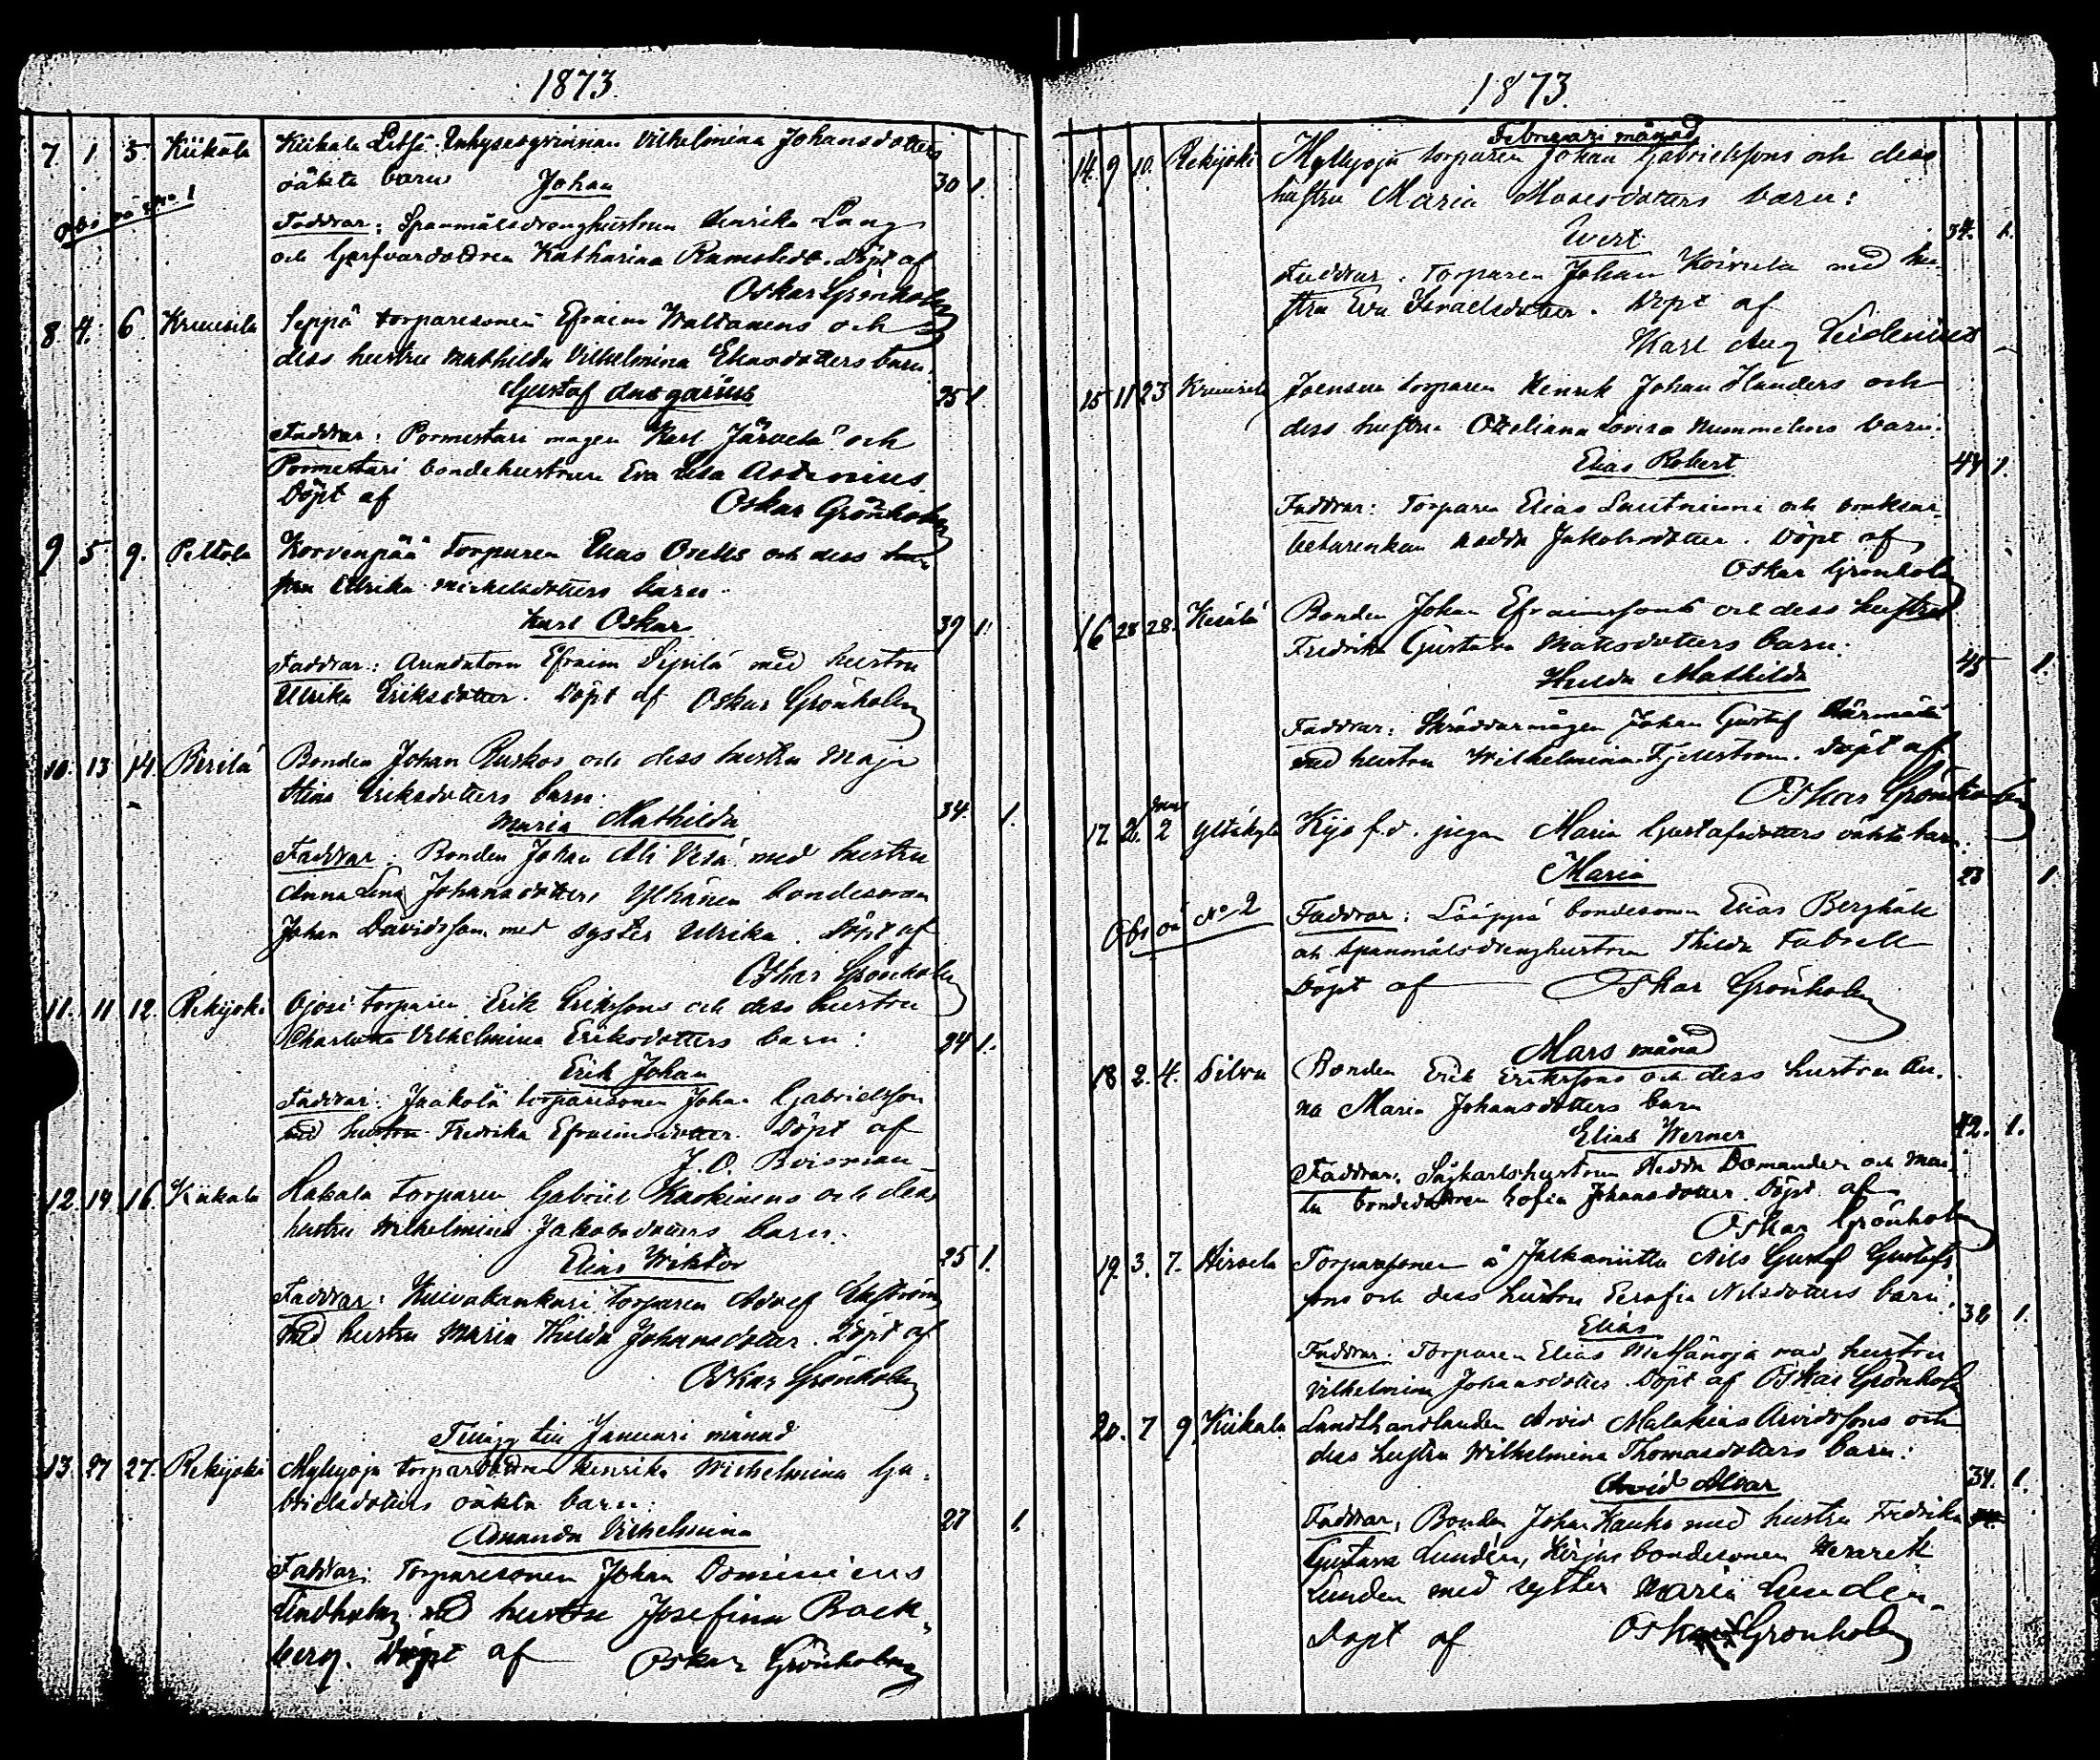 1873.
7. 1 5. Kiikala Kiikala Letsä Inhysesqvinnan Vilhelmina Johansdotters
oäkta barn Johan 30 1.
Obs oä No 1
Faddrar: Spanmålsdrenghustrun Henrika Lang
och Garfvardottren Katharina Ramstedt. Döpt af
Oskar Grönholm
8. 4. 6 Kruusila Seppä torparesonen Efraim Waltanens och
dess hustru Mathilda Vilhelmina Eliasdotters barn:
Gustaf Ansgarius 25 1
Faddrar: Pormestari mågen Karl Järvelä och
Pormestari bondehustrun Eva Lisa
Döpt af Oskar Grönholm
9 5 9. Peltola Korvenpää torparen Elias och dess hu-
stru Ulrika Mickelsdotters barn
Karl Oskar 39 1.
Faddrar: Arendatorn Efraim Sipilä med hustru
Ulrika Eriksdotter. Döpt af Oskar Grönholm
10. 13 14. Pirilä Bonden Johan Ruskos och dess hustru Maja
Stina Eriksdotters barn
Maria Mathilda 34. 1.
Faddrar: Bonden Johan Ali Vesa med hustru
Anna Lena Johansdotter, bondesonen
Johan Davidsson med syster Ulrika. Döpt af
Oskar Grönholm
11. 11 12. Rekijoki Ojasi torparen Erik Erikssons och dess hustru
Charlotta Vilhelmina Eriksdotters barn:
Erik Johan 24 1.
Faddrar: Jaakola torparesonen Johan Gabrielsson
med hustru Fredrika Efraimsdotter. Döpt af
J. O. Boisman
12. 14 16. Kiikala Hakala torparen Gabriel Kaskinens och dess
hustru Wilhelmina Jakobsdotters barn.
Elias Wiktor 25 1.
Faddrar: torparen Adolf Ekström
med hustru Maria Hulda Johansdotter. Döpt af
Oskar Grönholm
Tillägg till Januari månad
13. 27 27. Rekijoki Myllyoja torparedottren Henrika Wilhelmina Ga-
brielsdotters oäkta barn:
Amanda Vilhelmina 27 1.
Faddrar: Torparesonen Johan
Lindholm med hustru Josefina Back-
berg. Döpt af Oskar Grönholm
1873.
Februari månad
14. 9 10. Rekijoki Myllyoja torparen Johan Gabrielssons och dess
hustru Maria Mosesdotters barn:
Evert 34. 1.
Faddrar. Torparen Johan Koivula med hu-
stru Eva Israelsdotter. Döpt af
Karl Aug Leidenius
15 11 23 Kruusila Joensuu torparen Henrik Johan Handers och
dess hustru Otteliana Lovisa Nummelins barn.
Elias Robert 44 1.
Faddrar: Torparen Elias Lautniemi och bruksar-
betarenkan Hedda Jakobsdotter. Döpt af
Oskar Grönholm
16 28 28. Kesälä Bonden Johan Efraimssons och dess hustru
Fredrika Gustava Matsdotters barn:
Hulda Mathilda 45 1.
Faddrar: Skräddarmågen Johan Gustaf Härmälä
med hustru Wilhelmina Fjellström. Döpt af
Oskar Grönholm
17 26. mars 2 Yltäkylä Kijo f.d. pigan Maria Gustafsdotters oäkta barn:
Maria 23 1.
Obs oä No 2
Faddrar: bondesonen Elias Berghäll
och spanmålsdrenghustrun Thilda Fabsell
Döpt af Oskar Grönholm
Mars månad
18 2. 4. Silva Bonden Erik Erikssons och dess hustru An-
na Maria Johansdotters barn
Elias Werner 42. 1.
Faddrar: hustrun Hedda Domander och
bondedottren Sofia Johansdotter. Döpt af
Oskar Grönholm
19. 3. 7. Hirsela Torparesonen å Jalkaniittu Nils Gustaf Gustafs-
sons och dess hustru Serafia Nilsdotters barn:
Elias 32 1.
Faddrar: Torparen Elias Metsänoja med hustru
Vilhelmina Johansdotter. Döpt af Oskar Grönholm
20. 7 9. Kiikala Landthandlanden Arvid Malakias Arvidssons och
dess hustru Wilhelmina Thomasdotters barn:
Arvid Alvar 34. 1.
Faddrar, Bonden Johan Kauko med hustru Fredrika
Gustava Lunden, Kirjas bondesonen Henrik
Lunden med syster Maria Lunden.
Döpt af Oskar Grönholm